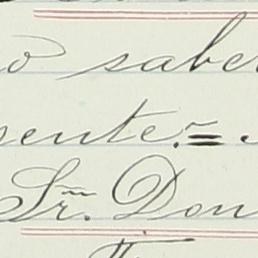 o saber
sente.=
Sr. Don